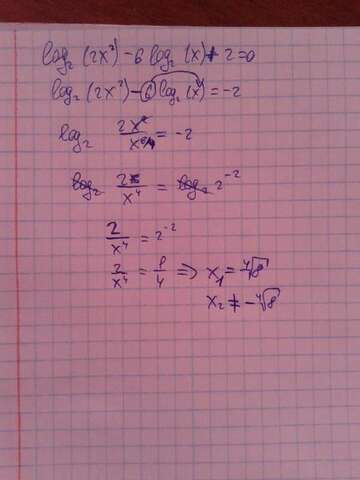 log₂(2x²) - 6 log₂(x) + 2 = 0
log₂(2x²) - 6 log₂(x) = -2
log₂ 2x²/x⁶ = -2
log₂ 2/x⁴ = log₂ 2⁻²
2/x⁴ = 2⁻²
2/x⁴ = 1/4 => x₁ = ⁴√8
x₂ ≠ -⁴√8